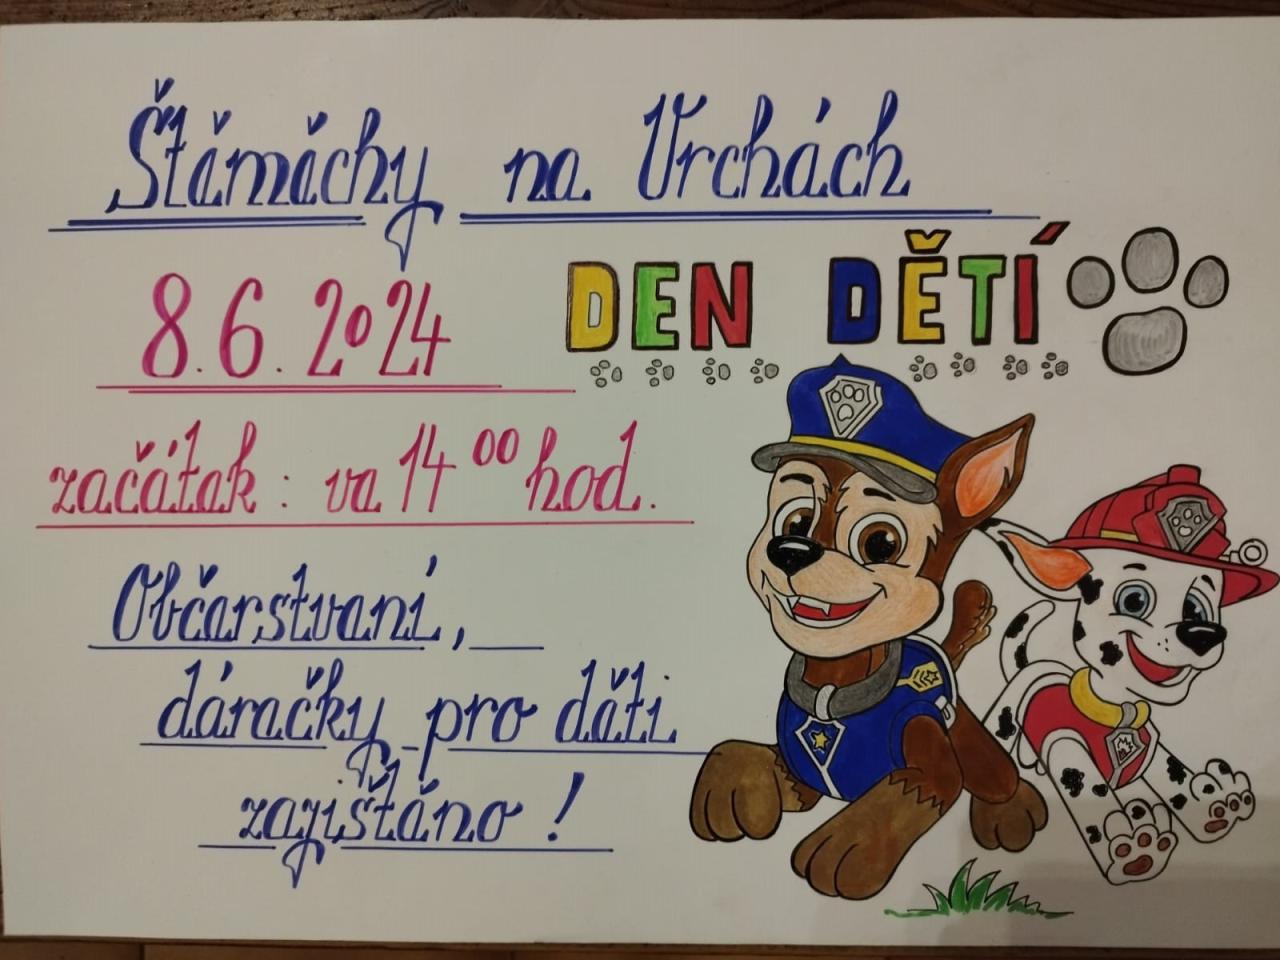 Štěměchy na Vrchách
DEN DĚTÍ
8.6.2024
začátek: ve 14 00 hod.
Občerstvení,
dárečky pro děti
zajištěno!